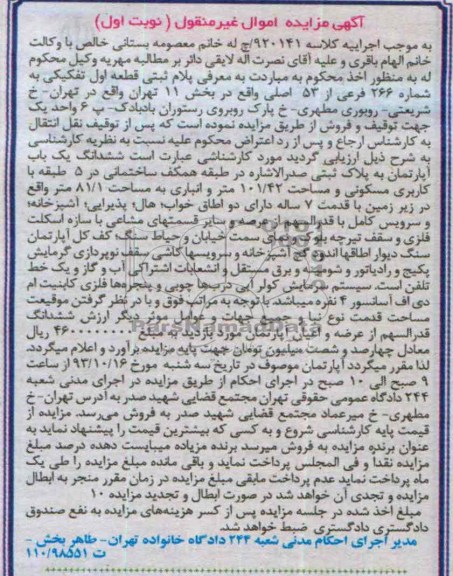 آگهی مزایده اموال غیرمنقول ( نوبت اول)
به موجب اجراییه کلاسه ۹۲۰۱۴۱/ج له خانم معصومه بستانی خالص با وکالت
خانم الهام باقری و علیه آقای نصرت اله لایقی دائر بر مطالبه مهریه وکیل محکوم
له به منظور اخذ محکوم به مبادرت به معرفی پلام ثبتی قطعه اول تفکیکی به
شماره ۲۶۶ فرعی از ۵۳ اصلی واقع در بخش ۱۱ تهران واقع در تهران- خ
شریعتی- روبوری مطهری- خ پارک روبروی رستوران بادبادک- پ ۶ واحد یک
جهت توقیف و فروش از طریق مزایده نموده است که پس از توقیف نقل انتقال
به کارشناس ارجاع و پس از رد اعتراض محکوم علیه نسبت به نظریه کارشناسی
به شرح ذیل ارزیابی گردید مورد کارشناسی عبارت است ششدانگ یک باب
آپارتمان به پلاک ثبتی صدرالاشاره در طبقه همکف ساختمانی در ۵ طبقه با
کاربری مسکونی و مساحت ۱۰۱/۴۲ متر و انباری به مساحت ۸۱/۱ متر واقع
در زیر زمین با قدمت ۷ ساله دارای دو اطاق خواب؛ هال؛ پذیرایی؛ آشپزخانه؛
و سرویس کامل با قدرالسهم از عرصه و سایر قسمتهای مشاعی با سازه اسکلت
فلزی و سقف تیرچه بلوک نمای سمت خیابان و حیاط سنگ؛ کف کل آپارتمان
سنگ دیوار اطاقها اندود گچ آشپزخانه و سرویسها کاشی سقف نورپردازی گرمایش
پکیج و رادیاتور و شومینه و برق مستقل و انشعابات اشتراکی آب و گاز و یک خط
تلفن است. سیستم سرمایش کولر آبی درب‌ها چوبی و پنجره‌ها فلزی کابینت ام
دی اف آسانسور ۴ نفره میباشد. با توجه به مراتب فوق و با در نظر گرفتن موقیعت
مساحت قدمت نوع بنا و جمیع جهات و عوامل موثر دیگر ارزش ششدانگ
قدرالسهم از عرصه و اعیان آپارتمان مورد بازدید به مبلغ ۴۶۰۰۰۰۰۰۰۰ ریال
معادل چهارصد و شصت میلیون تومان جهت پایه مزایده برآورد و اعلام میگردد.
لذا مقرر میگردد آپارتمان موصوف در تاریخ سه شنبه مورخ ۹۳/۱۰/۱۶ از ساعت
۹ صبح الی ۱۰ صبح در اجرای احکام از طریق مزایده در اجرای مدنی شعبه
۲۴۴ دادگاه عمومی حقوقی تهران مجتمع قضایی شهید صدر به ادرس تهران- خ
مطهری- خ میرعماد مجتمع قضایی شهید صدر به فروش می‌رسد. مزایده از
قیمت پایه کارشناسی شروع و به کسی که بیشترین قیمت را پیشنهاد نماید به
عنوان برنده مزایده به فروش میرسد برنده مزیاده میبایست دهده درصد مبلغ
مزایده نقدا و فی المجلس پرداخت نماید و باقی مانده مبلغ مزایده را طی یک
ماه پرداخت نماید عدم پرداخت مابقی مبلغ مزایده در زمان مقرر منجر به ابطال
مزایده و تجدی آن خواهد شد. در صورت ابطال و تجدید مزایده ۱۰
مبلغ اخذ شده در جلسه مزایده پس از کسر هزینه‌های مزایده به نفع صندوق
دادگستری دادگستری ضبط خواهد شد.
مدیر اجرای احکام مدنی شعبه ۲۴۴ دادگاه خانواده تهران- طاهر بخش -
ت ۱۱۰/۹۸۵۵۱